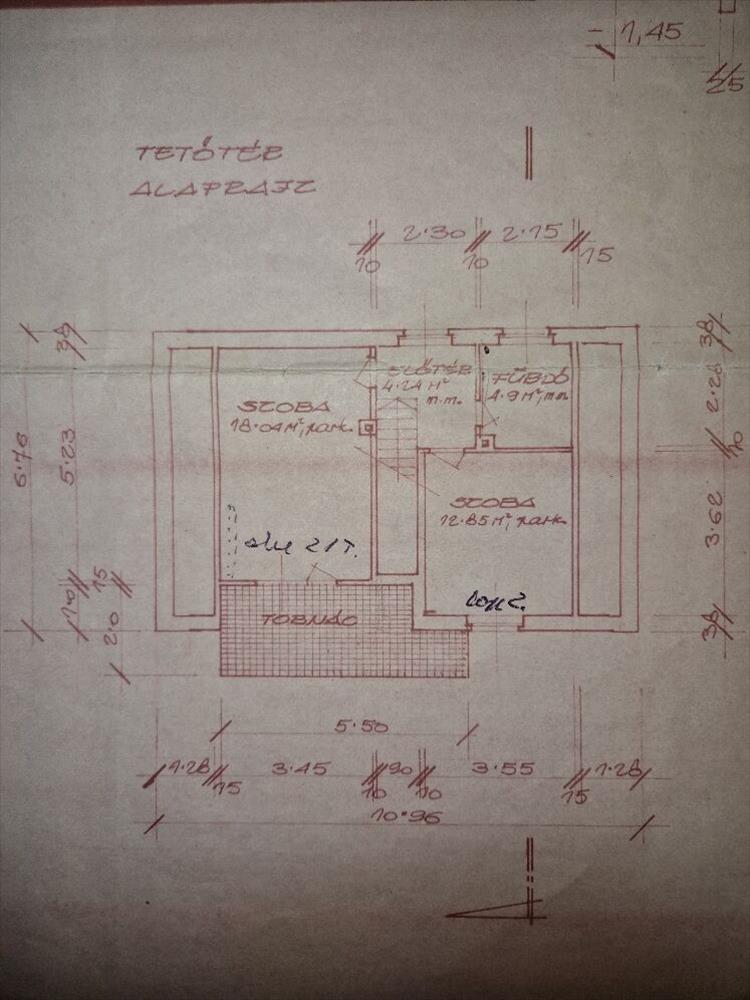 1,45
25
TETŐTÉR
ALAPRAJZ
2·30
2·15
10
10
15
38
38
ELŐTÉR
4·24 M² m.m.
FÜRDŐ
4·9 M², mm
SZOBA
18·04 M², park.
2·28
10
6·76
5·23
SZOBA
12·85 M², park.
3·62
15
TORNÁC
38
5·50
1·28
3·45
90
3·55
1·28
15
10
10
15
10·96